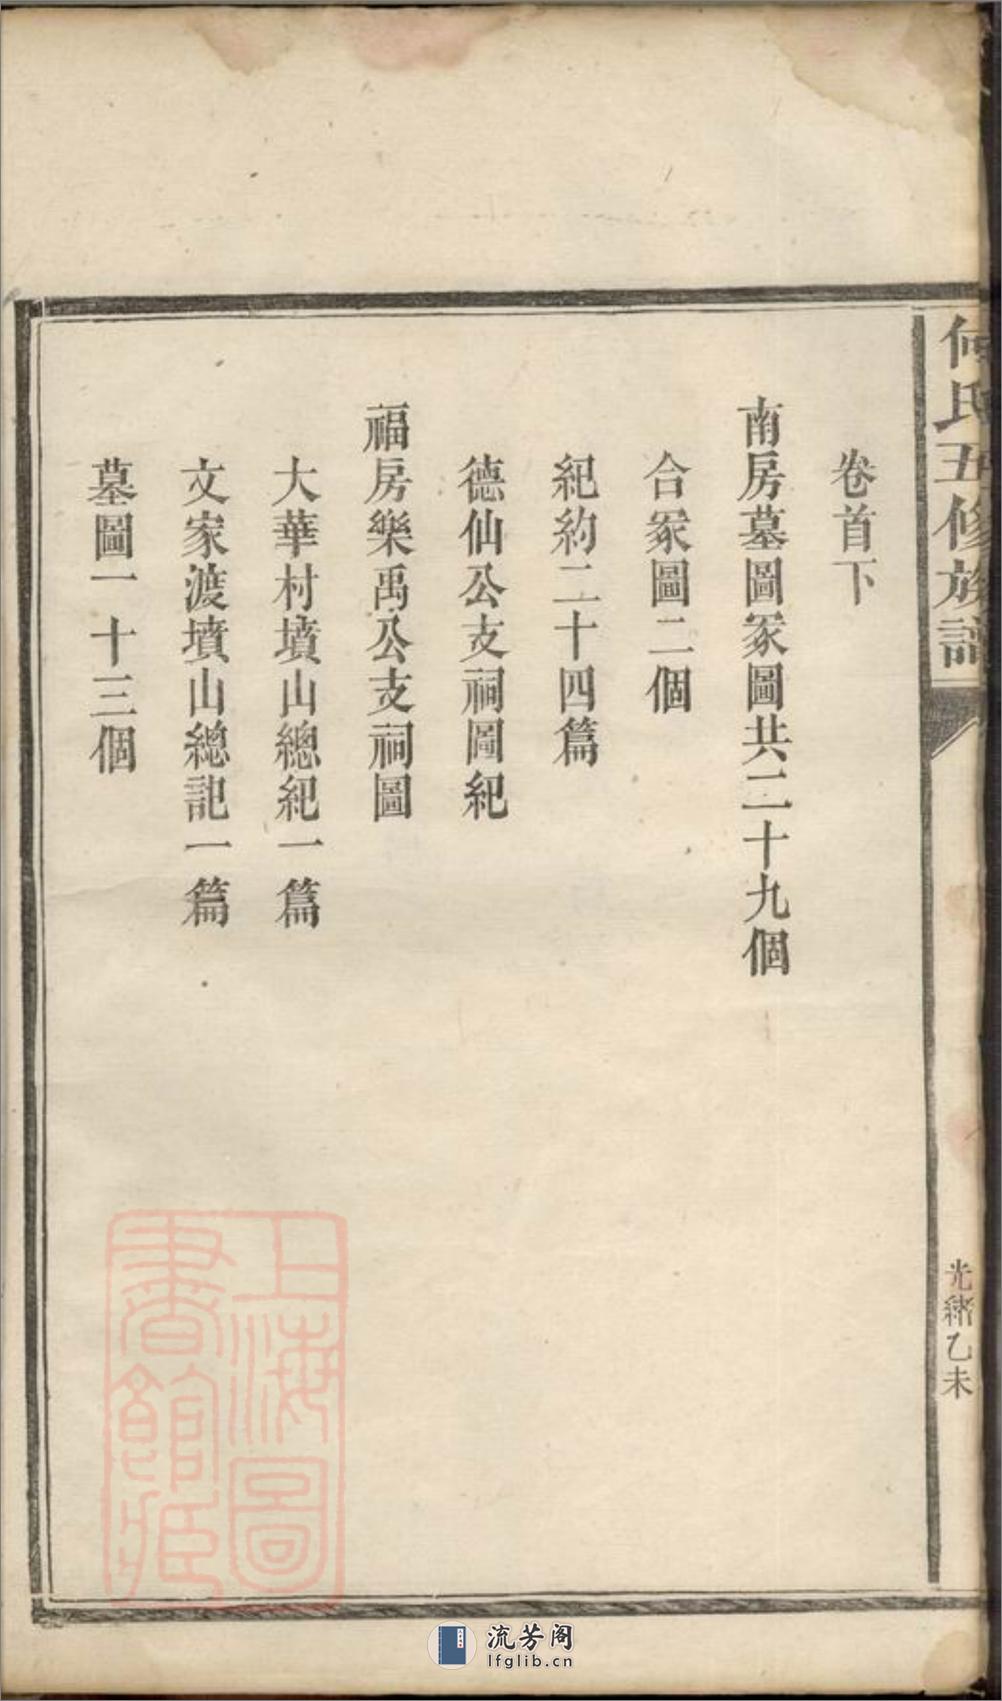 何氏五修族譜
光緒乙未
卷首下
南房墓圖冢圖共二十九個
合冢圖二個
紀約二十四篇
德仙公支祠圖紀
福房樂禹公支祠圖
大華村墳山總紀一篇
文家渡墳山總記一篇
墓圖一十三個
上海圖
書館藏
流芳阁
lfglib.cn